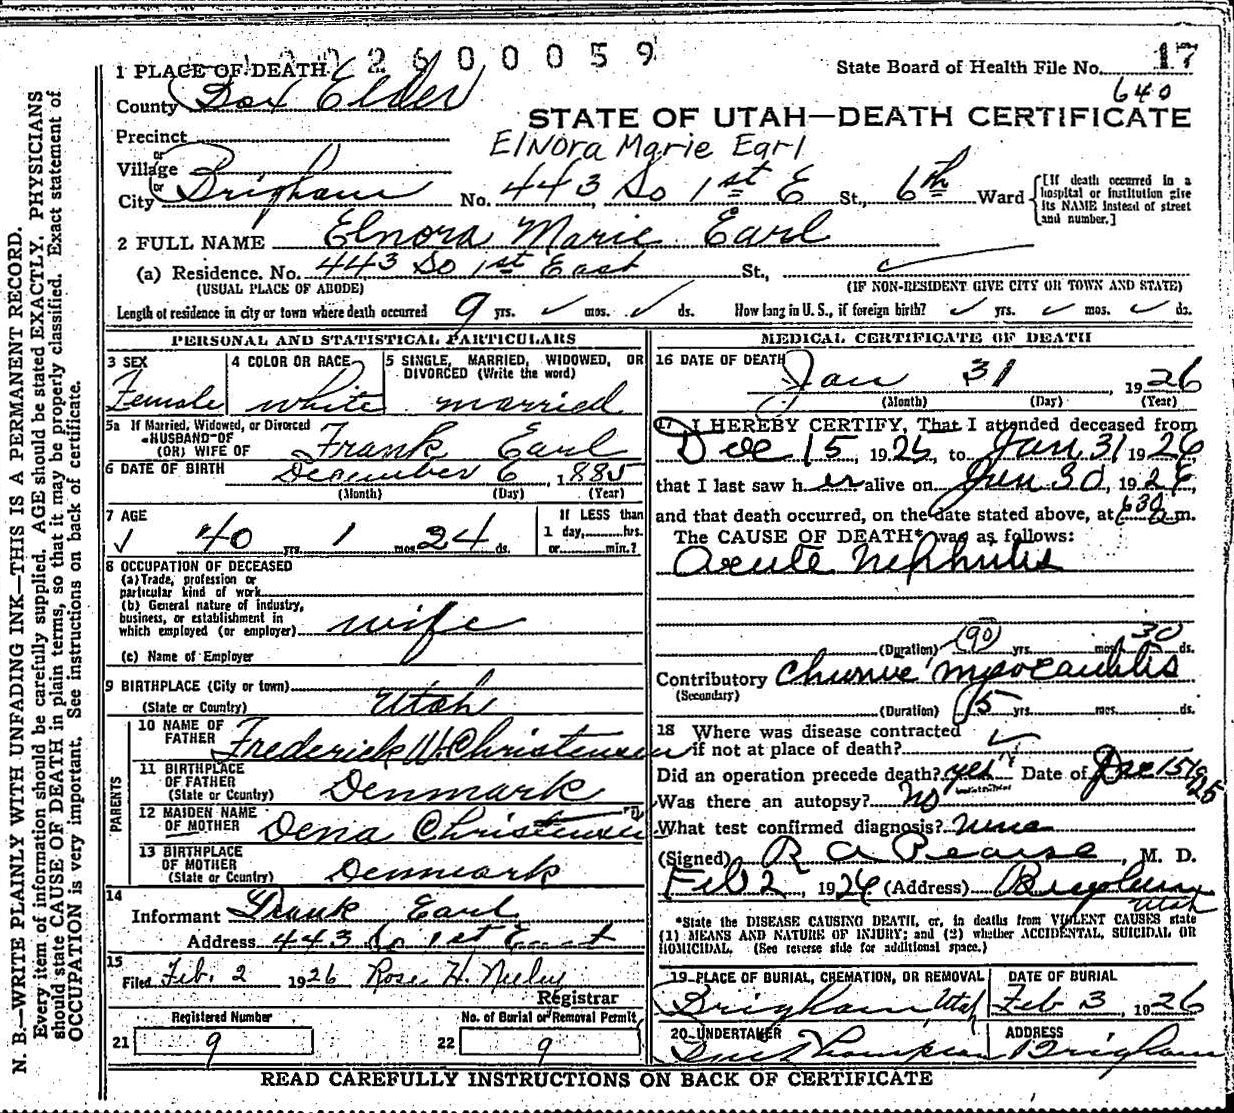 2600059
17
1 PLACE OF DEATH
State Board of Health File No.
640
County Box Elder
STATE OF UTAH—DEATH CERTIFICATE
Precinct
Elnora Marie Earl
or
Village
or
City Brigham No. 443 So 1st E St., 6th Ward
[If death occurred in a hospital or institution give its NAME instead of street and number.]
2 FULL NAME Elnora Marie Earl
(a) Residence. No. 443 So 1st East St.,
(USUAL PLACE OF ABODE) (IF NON-RESIDENT GIVE CITY OR TOWN AND STATE)
Length of residence in city or town where death occurred 9 yrs. ✓ mos. ✓ ds. How long in U. S., if foreign birth? ✓ yrs. ✓ mos. ✓ ds.
PERSONAL AND STATISTICAL PARTICULARS
3 SEX
Female
4 COLOR OR RACE
white
5 SINGLE, MARRIED, WIDOWED, OR
DIVORCED (Write the word)
married
5a If Married, Widowed, or Divorced
HUSBAND OF
(OR) WIFE OF Frank Earl
6 DATE OF BIRTH December 6, 1885
(Month) (Day) (Year)
7 AGE
✓ 40 yrs. 1 mos. 24 ds.
If LESS than
1 day, hrs.
or min.?
8 OCCUPATION OF DECEASED
(a) Trade, profession or
particular kind of work
(b) General nature of industry,
business, or establishment in
which employed (or employer) wife
(c) Name of Employer
9 BIRTHPLACE (City or town)
(State or Country) Utah
PARENTS
10 NAME OF
FATHER Frederick W. Christensen
11 BIRTHPLACE
OF FATHER
(State or Country) Denmark
12 MAIDEN NAME
OF MOTHER Dena Christensen
13 BIRTHPLACE
OF MOTHER
(State or Country) Denmark
14
Informant Frank Earl
Address 443 So 1st East
15
Filed Feb. 2 1926 Rose H. Neeley
Registrar
Registered Number
21 9
No. of Burial or Removal Permit
22 9
MEDICAL CERTIFICATE OF DEATH
16 DATE OF DEATH
Jan 31, 1926
(Month) (Day) (Year)
17 I HEREBY CERTIFY, That I attended deceased from
Dec 15, 1925, to Jan 31 1926
that I last saw her alive on Jan 30, 1926,
and that death occurred, on the date stated above, at 630 a.m.
The CAUSE OF DEATH* was as follows:
Acute Nephritis
(Duration) (90) yrs. mos. 30 ds.
Contributory Chronic Myocarditis
(Secondary)
(Duration) 15 yrs. mos. ds.
18 Where was disease contracted
if not at place of death? ✓
Did an operation precede death? yes Date of Dec 15 1925
Was there an autopsy? No
What test confirmed diagnosis? none
(Signed) R A Pearse, M. D.
Feb 2, 1926 (Address) Brigham
Utah
*State the DISEASE CAUSING DEATH, or, in deaths from VIOLENT CAUSES state
(1) MEANS AND NATURE OF INJURY; and (2) whether ACCIDENTAL, SUICIDAL OR
HOMICIDAL. (See reverse side for additional space.)
19 PLACE OF BURIAL, CREMATION, OR REMOVAL
Brigham, Utah
DATE OF BURIAL
Feb 3, 1926
20 UNDERTAKER
Thompson
ADDRESS
Brigham
READ CAREFULLY INSTRUCTIONS ON BACK OF CERTIFICATE
N. B.—WRITE PLAINLY WITH UNFADING INK—THIS IS A PERMANENT RECORD.
Every item of information should be carefully supplied. AGE should be stated EXACTLY. PHYSICIANS
should state CAUSE OF DEATH in plain terms, so that it may be properly classified. Exact statement of
OCCUPATION is very important. See instructions on back of certificate.